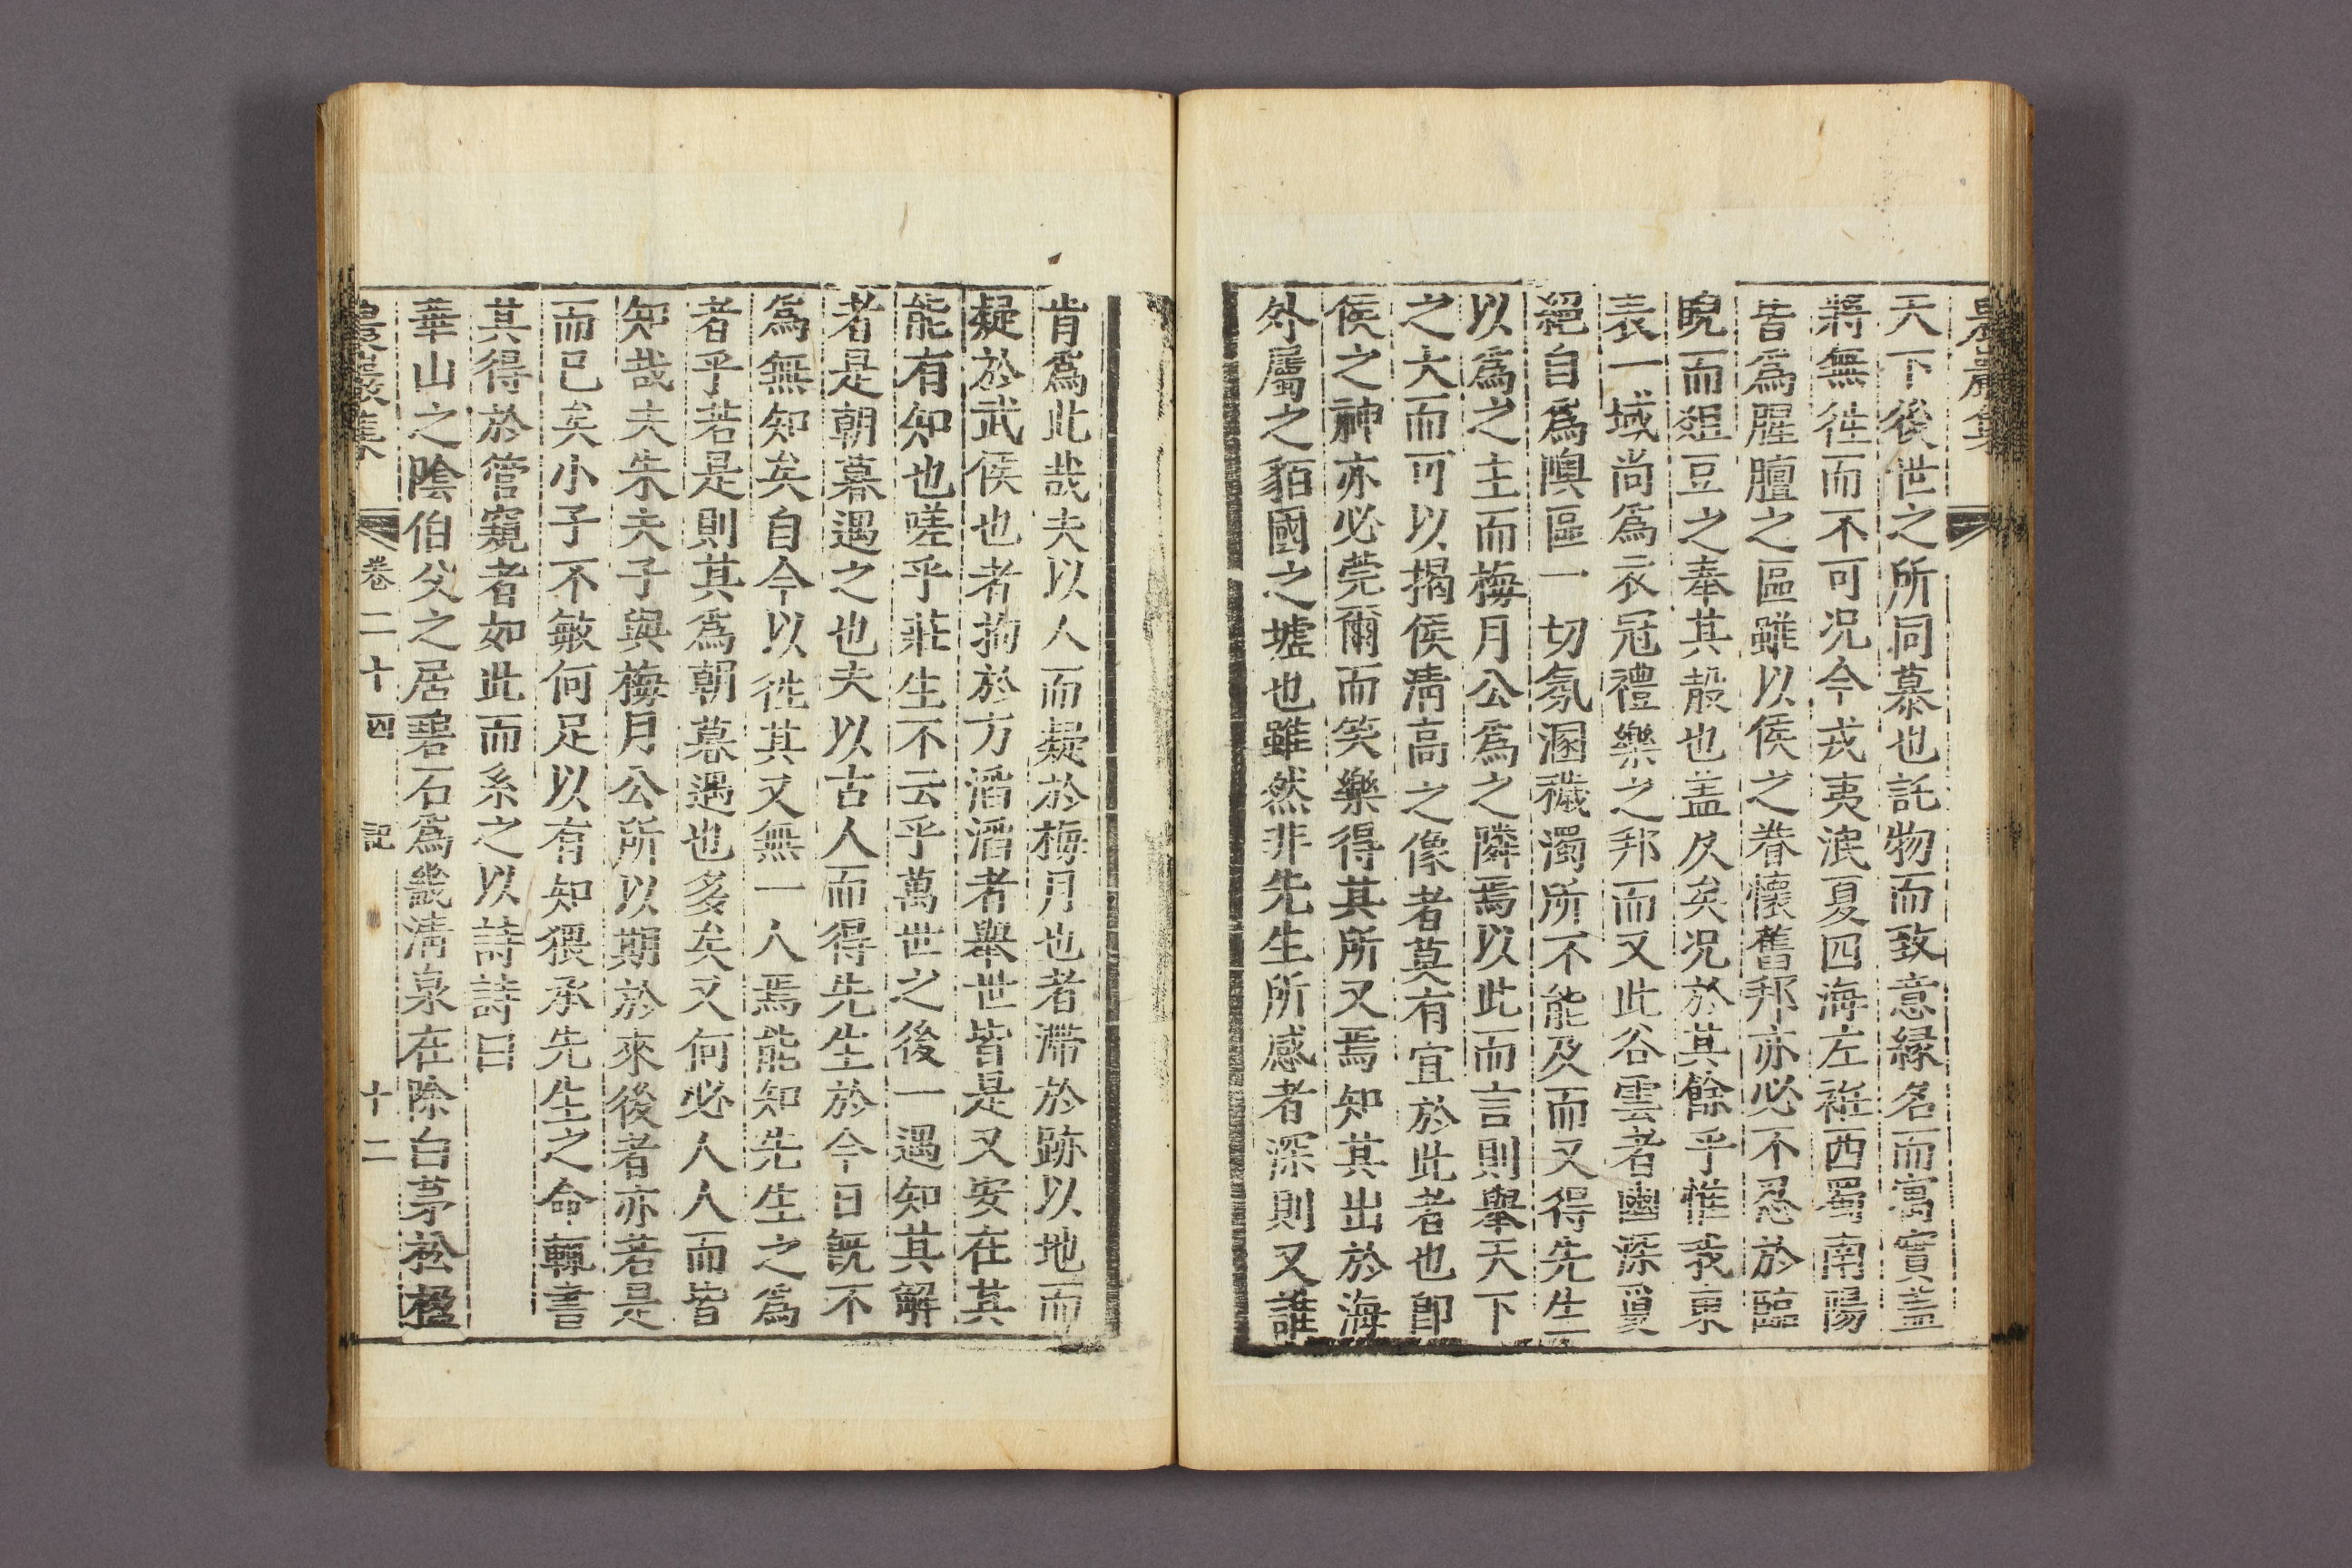 農巖集
天下後世之所同慕也託物而致意緣名而寓實盖
將無徃而不可况今戎夷浱夏四海左袵西蜀南陽
皆爲腥膻之區雖以侯之眷懷舊邦亦必不忍於臨
睨而俎豆之奉其殽也盖久矣况於其餘乎惟我東
表一域尚爲衣冠禮樂之邦而又此谷雲者幽深敻
絕自爲隩區一切氛溷穢濁所不能及而又得先生
以爲之主而梅月公爲之隣焉以此而言則擧天下
之大而可以揭侯淸高之像者莫有宜於此者也卽
侯之神亦必莞爾而笑樂得其所又焉知其出於海
外屬之貊國之墟也雖然非先生所感者深則又誰
肯爲此哉夫以人而疑於梅月也者滯於跡以地而
疑於武侯也者拘於方滔滔者擧世皆是又安在其
能有知也嗟乎莊生不云乎萬世之後一遇知其解
者是朝暮遇之也夫以古人而得先生於今日旣不
爲無知矣自今以徃其又無一人焉能知先生之爲
者乎若是則其爲朝暮遇也多矣又何必人人而皆
知哉夫朱夫子與梅月公所以期於來後者亦若是
而已矣小子不敏何足以有知猥承先生之命輒書
其得於管窺者如此而系之以詩詩曰
華山之陰伯父之居碧石爲畿淸泉在除白茅松極
農巖集 卷二十四 記 十二